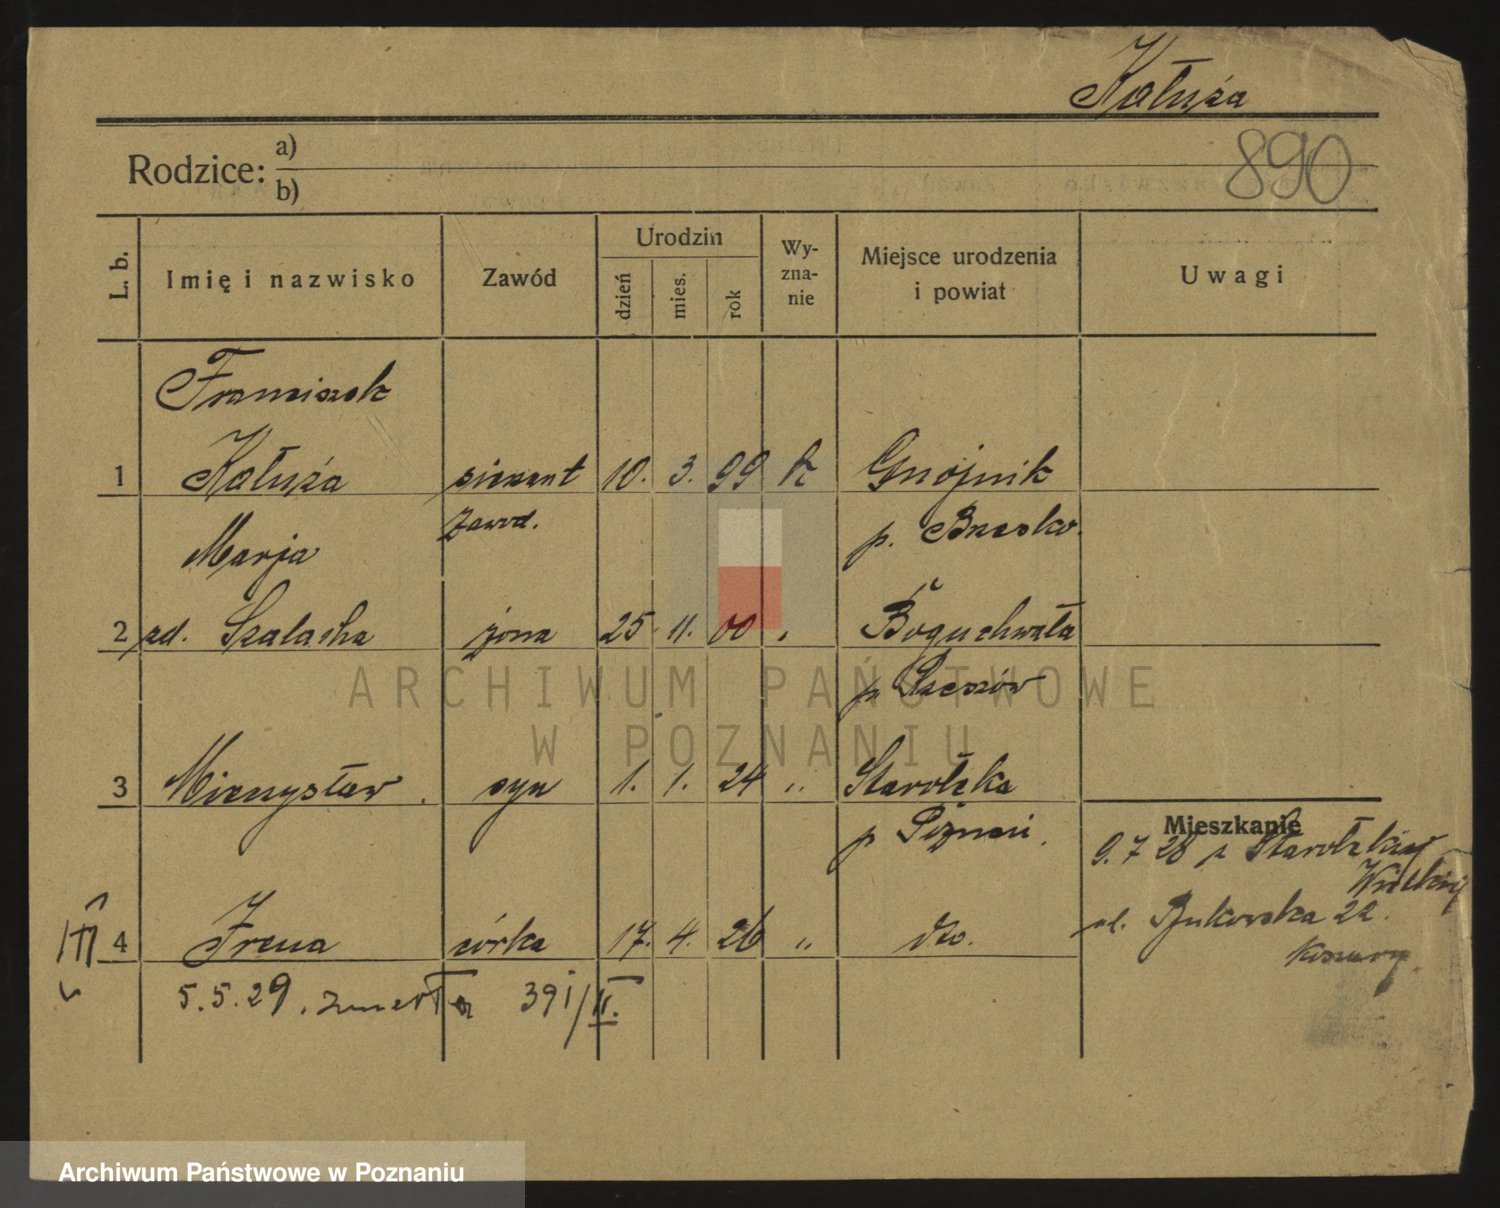 Kałuża
890
Rodzice: a)
b)
L. b.
Imię i nazwisko
Zawód
Urodzin
dzień
mies.
rok
Wy-
zna-
nie
Miejsce urodzenia
i powiat
Uwagi
Franciszek
1 Kałuża sierżant 10. 3. 99 k Gnojnik
zawod. p. Brzesko.
Marja
2 zd. Szalacha żona 25. 11. 00 " Boguchwała
p. Rzeszów
3 Mieczysław. syn 1. 1. 24 " Starołęka
p Poznań.
Mieszkanie
9. 7 28 z Starołękiej
Wielkiej
ul. Bukowska 22.
Koszary
III 4 Irena córka 17. 4. 26 " dto.
5.5.29. zmarła 391/II.
ARCHIWUM PAŃSTWOWE
W POZNANIU
Archiwum Państwowe w Poznaniu